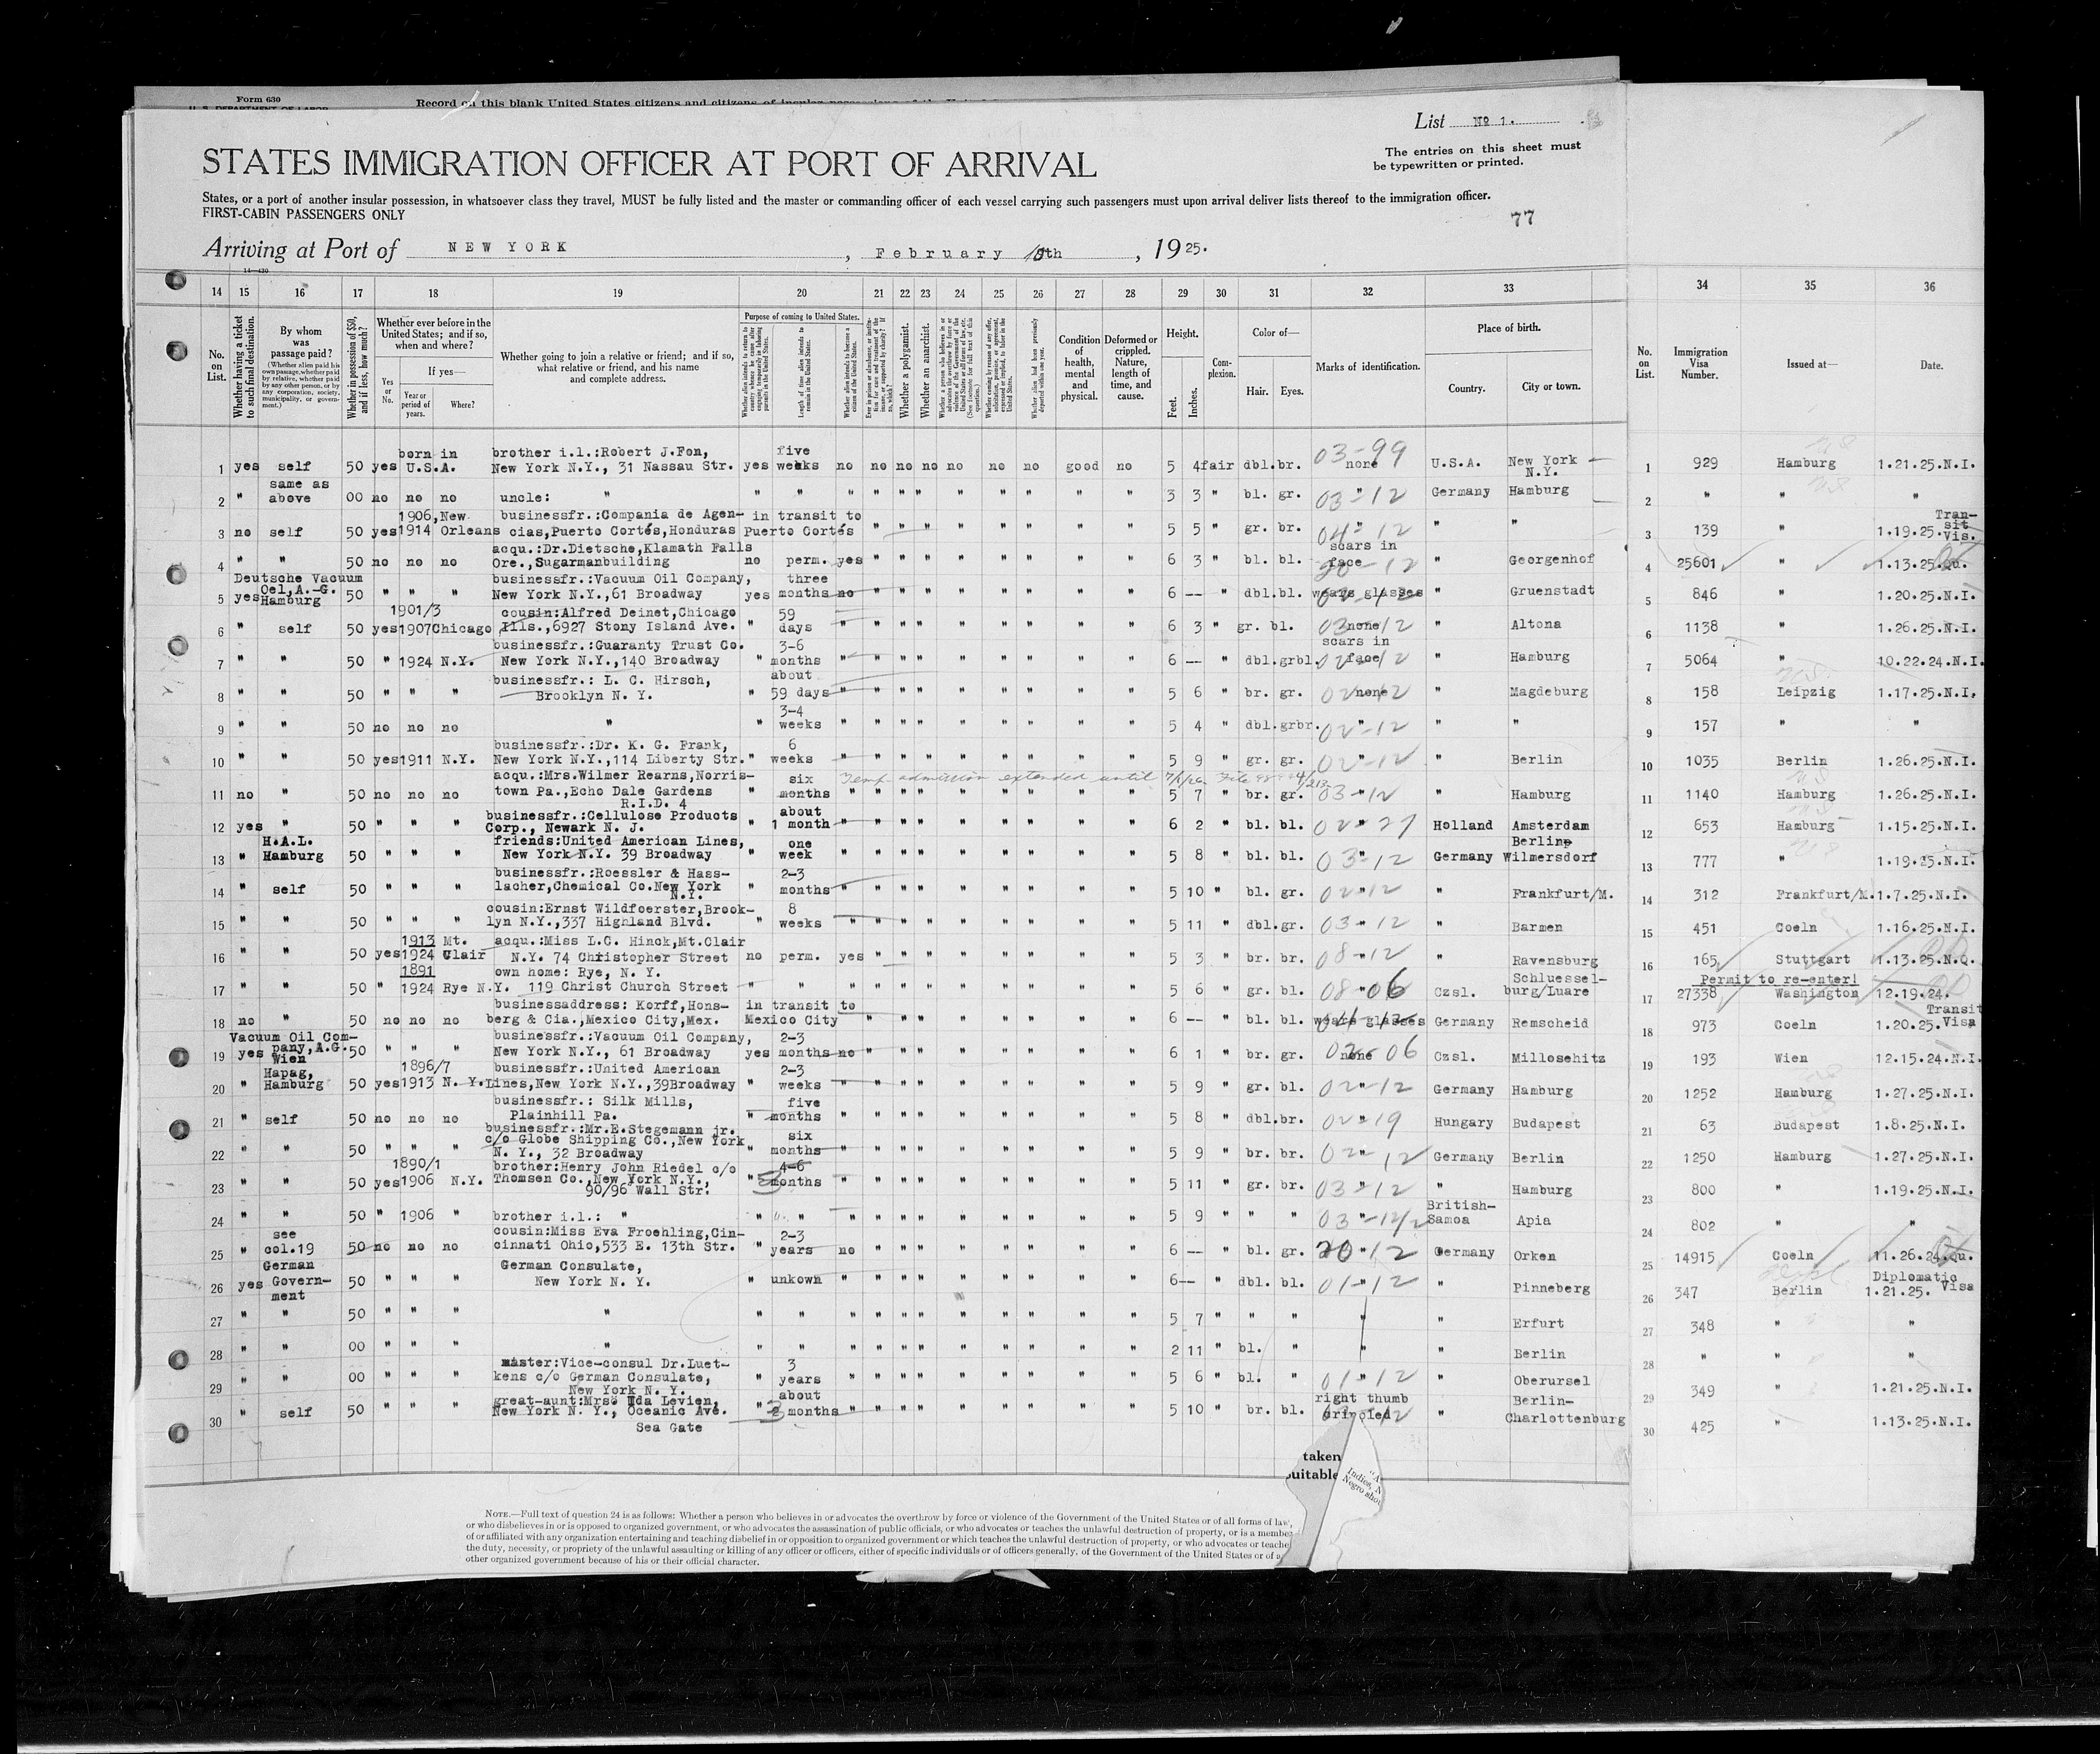 Form 630
U. S. DEPARTMENT OF LABOR
Record on this blank United States citizens and citizens of insular possessions of the United
List No 1.
The entries on this sheet must
be typewritten or printed.
STATES IMMIGRATION OFFICER AT PORT OF ARRIVAL
States, or a port of another insular possession, in whatsoever class they travel, MUST be fully listed and the master or commanding officer of each vessel carrying such passengers must upon arrival deliver lists thereof to the immigration officer.
FIRST-CABIN PASSENGERS ONLY
77
Arriving at Port of NEW YORK, February 10th, 1925.
14—430
14 15 16 17 18 19 20 21 22 23 24 25 26 27 28 29 30 31 32 33 34 35 36
No. on List.
Whether having a ticket to such final destination.
By whom was passage paid?
(Whether alien paid his own passage, whether paid by relative, whether paid by any other person, or by any corporation, society, municipality, or government.)
Whether in possession of $50, and if less, how much?
Whether ever before in the United States; and if so, when and where?
Yes or No.
If yes—
Year or period of years.
Where?
Whether going to join a relative or friend; and if so, what relative or friend, and his name and complete address.
Purpose of coming to United States.
Length of time alien intends to remain in the United States.
Whether alien intends to become a citizen of the United States.
Whether a polygamist.
Whether an anarchist.
Condition of health, mental and physical.
Deformed or crippled. Nature, length of time, and cause.
Height.
Feet.
Inches.
Complexion.
Color of—
Hair.
Eyes.
Marks of identification.
Place of birth.
Country.
City or town.
No. on List.
Immigration Visa Number.
Issued at—
Date.
1 yes self 50 yes born in U.S.A. brother i.l.:Robert J.Fon, New York N.Y., 31 Nassau Str. yes five weeks no no no no no no no good no 5 4 fair dbl. br. 03-99 none U.S.A. New York N.Y. 1 929 Hamburg 1.21.25.N.I.
2 " same as above 00 no no no uncle: " " " " " " " " " " " " 3 3 " bl. gr. 03-12 " Germany Hamburg 2 " " "
3 no self 50 yes 1906, 1914 New Orleans businessfr.:Compania de Agencias,Puerto Cortés,Honduras in transit to Puerto Cortés " " " " " " " " 5 5 " gr. br. 04-12 " " " 3 139 " 1.19.25. Transit Vis.
4 " " 50 no no no acqu.:Dr.Dietsche,Klamath Falls Ore.,Sugarmanbuilding no perm. yes " " " " " " " " 6 3 " bl. bl. scars in face 20-12 " Georgenhof 4 25601 " 1.13.25.Qu.
5 yes Deutsche Vacuum Oel,A.-G. Hamburg 50 " " " businessfr.:Vacuum Oil Company, New York N.Y.,61 Broadway yes three months no " " " " " " " " 6 -- " dbl. bl. wears glasses 02-12 " Gruenstadt 5 846 " 1.20.25.N.I.
6 " self 50 yes 1901/3 1907 Chicago cousin:Alfred Deinet,Chicago Ills.,6927 Stony Island Ave. " 59 days " " " " " " " " " 6 3 " gr. bl. 03-12 none " Altona 6 1138 " 1.26.25.N.I.
7 " " 50 " 1924 N.Y. businessfr.:Guaranty Trust Co. New York N.Y.,140 Broadway " 3-6 months " " " " " " " " " 6 -- " dbl. grbl. scars in face 02-12 " Hamburg 7 5064 " 10.22.24.N.I.
8 " " 50 " " " businessfr.: L. C. Hirsch, Brooklyn N. Y. " about 59 days " " " " " " " " " 5 6 " br. gr. 02-12 none " Magdeburg 8 158 Leipzig 1.17.25.N.I.
9 " " 50 no no no " " 3-4 weeks " " " " " " " " " 5 4 " dbl. grbr. 02-12 " " " 9 157 " "
10 " " 50 yes 1911 N.Y. businessfr.:Dr. K. G. Frank, New York N.Y.,114 Liberty Str. " 6 weeks " " " " " " " " " 5 9 " gr. gr. 02-12 " " Berlin 10 1035 Berlin 1.26.25.N.I.
Temp admission extended until 7/1/26 File
11 no " 50 no no no acqu.:Mrs.Wilmer Rearns,Norristown Pa.,Echo Dale Gardens R.I.D. 4 " six months " " " " " " " " " 5 7 " br. gr. 03-12 " " Hamburg 11 1140 Hamburg 1.26.25.N.I.
12 yes " 50 " " " businessfr.:Cellulose Products Corp., Newark N. J. " about 1 month " " " " " " " " " 6 2 " bl. bl. 02-27 " Holland Amsterdam 12 653 Hamburg 1.15.25.N.I.
13 " H.A.L. Hamburg 50 " " " friends:United American Lines, New York N.Y. 39 Broadway " one week " " " " " " " " " 5 8 " bl. bl. 03-12 " Germany Berlin-Wilmersdorf 13 777 " 1.19.25.N.I.
14 " self 50 " " " businessfr.:Roessler & Hasslacher,Chemical Co.New York N.Y. " 2-3 months " " " " " " " " " 5 10 " bl. gr. 02-12 " " Frankfurt/M. 14 312 Frankfurt/M. 1.7.25.N.I.
15 " " 50 " " " cousin:Ernst Wildfoerster,Brooklyn N.Y.,337 Highland Blvd. " 8 weeks " " " " " " " " " 5 11 " dbl. gr. 03-12 " " Barmen 15 451 Coeln 1.16.25.N.I.
16 " " 50 yes 1913 1924 Mt. Clair acqu.:Miss L.C. Hinck,Mt.Clair N.Y. 74 Christopher Street no perm. yes " " " " " " " " 5 3 " br. br. 08-12 " " Ravensburg 16 165 Stuttgart 1.13.25.N.Q.
17 " " 50 " 1891 1924 Rye N.Y. own home: Rye, N. Y. 119 Christ Church Street " " " " " " " " " " " 5 6 " gr. bl. 08-06 " Czsl. Schluesselburg/Luare 17 27338 Permit to re-enter! Washington 12.19.24.
18 no " 50 no no no businessaddress: Korff, Honsberg & Cia.,Mexico City,Mex. in transit to Mexico City " " " " " " " " 6 -- " bl. bl. wears glasses 04-12 Germany Remscheid 18 973 Coeln 1.20.25. Transit Visa
19 yes Vacuum Oil Company,A.G. Wien 50 " " " businessfr.:Vacuum Oil Company, New York N.Y., 61 Broadway yes 2-3 months no " " " " " " " " 6 1 " br. gr. 02-06 none Czsl. Millosehitz 19 193 Wien 12.15.24.N.I.
20 " Hapag, Hamburg 50 yes 1896/7 1913 N. Y. businessfr.:United American Lines,New York N.Y.,39Broadway " 2-3 weeks " " " " " " " " " 5 9 " gr. bl. 02-12 " Germany Hamburg 20 1252 Hamburg 1.27.25.N.I.
21 " self 50 no no no businessfr.: Silk Mills, Plainhill Pa. " five months " " " " " " " " " 5 8 " dbl. br. 02-19 " Hungary Budapest 21 63 Budapest 1.8.25.N.I.
22 " " 50 " " " businessfr.:Mr.E.Stegemann jr. c/o Globe Shipping Co.,New York N. Y., 32 Broadway " six months " " " " " " " " " 5 9 " br. br. 02-12 " Germany Berlin 22 1250 Hamburg 1.27.25.N.I.
23 " " 50 yes 1890/1 1906 N.Y. brother:Henry John Riedel c/o Thomsen Co.,New York N.Y., 90/96 Wall Str. " 4-6 3 months " " " " " " " " " 5 11 " gr. br. 03-12 " " Hamburg 23 800 " 1.19.25.N.I.
24 " " 50 " 1906 " brother i.l.: " " " " " " " " " " " " 5 9 " " " 03-12/2 " British-Samoa Apia 24 802 " "
25 " see col.19 50 no no no cousin:Miss Eva Froehling,Cincinnati Ohio,533 E. 13th Str. " 2-3 years no " " " " " " " " 6 -- " bl. gr. 20-12 " Germany Orken 25 14915 Coeln 11.26.24.Qu.
26 yes German Government 50 " " " German Consulate, New York N. Y. " unkown " " " " " " " " " 6-- " dbl. bl. 01-12 " " Pinneberg 26 347 Berlin 1.21.25. Diplomatic Visa
27 " " 50 " " " " " " " " " " " " " " " 5 7 " " " " " Erfurt 27 348 " "
28 " " 00 " " " " " " " " " " " " " " " 2 11 " bl. " " " Berlin 28 " " "
29 " " 00 " " " master:Vice-consul Dr.Luetkens c/o German Consulate, New York N. Y. " 3 years " " " " " " " " " 5 6 " bl. " 01-12 " " Oberursel 29 349 " 1.21.25.N.I.
30 " self 50 " " " great-aunt:Mrs. Ida Levien, New York N. Y., Oceanic Ave. Sea Gate " about 3 months " " " " " " " " " 5 10 " br. bl. right thumb crippled " Berlin-Charlottenburg 30 425 " 1.13.25.N.I.
taken
suitable
NOTE.—Full text of question 24 is as follows: Whether a person who believes in or advocates the overthrow by force or violence of the Government of the United States or of all forms of law,
or who disbelieves in or is opposed to organized government, or who advocates the assassination of public officials, or who advocates or teaches the unlawful destruction of property, or is a member
of or affiliated with any organization entertaining and teaching disbelief in or opposition to organized government or which teaches the unlawful destruction of property, or who advocates or teaches
the duty, necessity, or propriety of the unlawful assaulting or killing of any officer or officers, either of specific individuals or of officers generally, of the Government of the United States or of a
other organized government because of his or their official character.